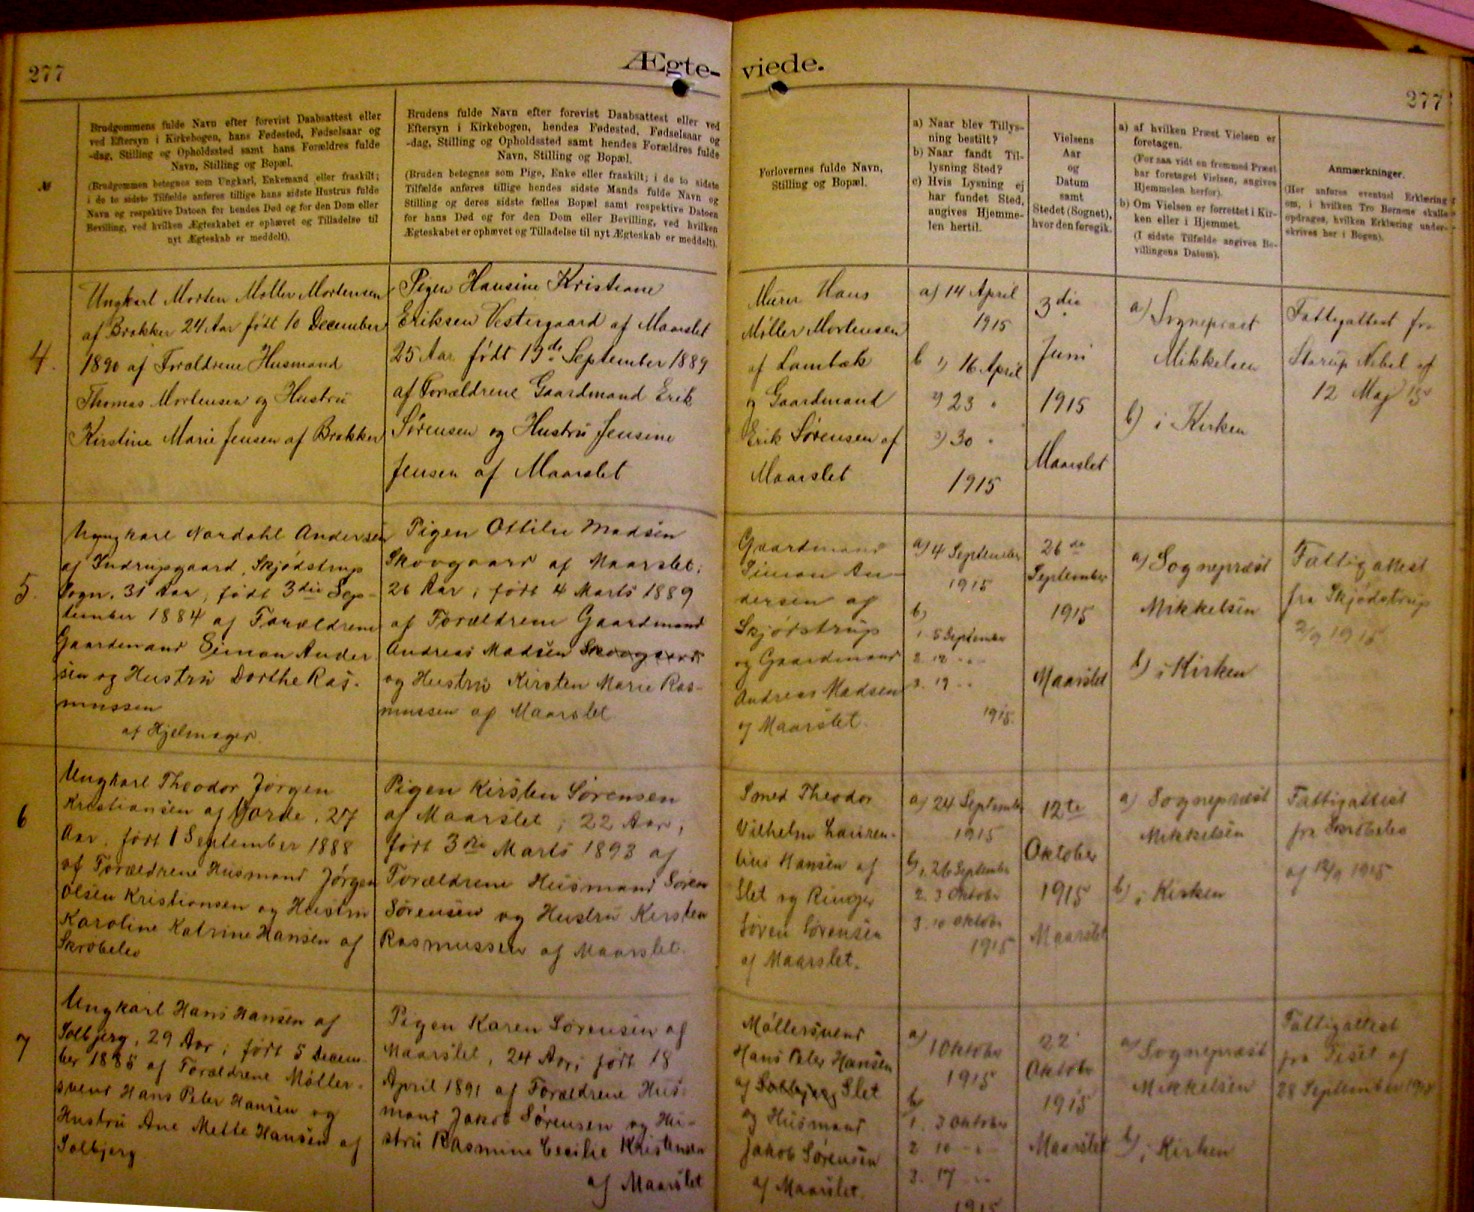 277
Ægte-
viede.
277
№
Brudgommens fulde Navn efter forevist Daabsattest eller
ved Eftersyn i Kirkebogen, hans Fødested, Fødselsaar og
-dag, Stilling og Opholdssted samt hans Forældres fulde
Navn, Stilling og Bopæl.
(Brudgommen betegnes som Ungkarl, Enkemand eller fraskilt;
i de to sidste Tilfælde anføres tillige hans sidste Hustrus fulde
Navn og respektive Datoen for hendes Død og for den Dom eller
Bevilling, ved hvilken Ægteskabet er ophævet og Tilladelse til
nyt Ægteskab er meddelt).
Brudens fulde Navn efter forevist Daabsattest eller ved
Eftersyn i Kirkebogen, hendes Fødested, Fødselsaar og
-dag, Stilling og Opholdssted samt hendes Forældres fulde
Navn, Stilling og Bopæl.
(Bruden betegnes som Pige, Enke eller fraskilt; i de to sidste
Tilfælde anføres tillige hendes sidste Mands fulde Navn og
Stilling og deres sidste fælles Bopæl samt respektive Datoen
for hans Død og for den Dom eller Bevilling, ved hvilken
Ægteskabet er ophævet og Tilladelse til nyt Ægteskab er meddelt).
Forlovernes fulde Navn,
Stilling og Bopæl.
a) Naar blev Tillys-
ning bestilt?
b) Naar fandt Til-
lysning Sted?
c) Hvis Lysning ej
har fundet Sted,
angives Hjemme-
len hertil.
Vielsens
Aar
og
Datum
samt
Stedet (Sognet),
hvor den foregik.
a) af hvilken Præst Vielsen er
foretagen.
(For saa vidt en fremmed Præst
har foretaget Vielsen, angives
Hjemmelen herfor).
b) Om Vielsen er forrettet i Kir-
ken eller i Hjemmet.
(I sidste Tilfælde angives Be-
villingens Datum).
Anmærkninger.
(Her anføres eventuel Erklæring
om, i hvilken Tro Børnene skulle
opdrages, hvilken Erklæring under-
skrives her i Bogen).
4.
Ungkarl Morten Møller Mortensen
af Brokker 24 Aar født 10 December
1890 af Forældrene Husmand
Thomas Mortensen og Hustru
Kirstine Marie Jensen af Brokker
Pigen Hansine Kristiane
Eriksen Vestergaard af Maarslet
25 Aar født 15de September 1889
af Forældrene Gaardmand Erik
Sørensen og Hustru Jensine
Jensen af Maarslet
Murer Hans
Møller Mortensen
af Lambæk
og Gaardmand
Erik Sørensen af
Maarslet
a) 14 April
1915
b 1) 16 April
2) 23 "
3) 30 "
1915
3die
Juni
1915
Maarslet
a) Sognepræst
Mikkelsen
b) i Kirken
Fattigattest fra
Starup Nebel af
12 Maj 15
5.
Ungkarl Nordahl Andersen
af Indrupgaard, Skjødstrup
Sogn, 31 Aar, født 3die Sep-
tember 1884 af Forældrene
Gaardmand Simon Ander
sen og Hustru Dorthe Ras-
mussen
af Hjelmager
Pigen Ottilie Madsen
Skovgaard af Maarslet,
26 Aar, født 4 Marts 1889
af Forældrene Gaardmand
Andreas Madsen Skovgaard
og Hustru Kirsten Marie Ras-
mussen af Maarslet
Gaardmand
Simon An-
dersen af
Skjødstrup
og Gaardmand
Andreas Madsen
af Maarslet.
a) 4 September
1915
b)
1. 5 September
2. 12 " "
3. 19 " "
1915.
26de
September
1915
Maarslet
a) Sognepræst
Mikkelsen
b) i Kirken
Fattigattest
fra Skjødstrup
2/9 1915
6
Ungkarl Theodor Jørgen
Kristiansen af Varde, 27
Aar, født 1 September 1888
af Forældrene Husmand Jørgen
Olsen Kristiansen og Hustru
Karoline Katrine Hansen af
Skrøbelev
Pigen Kirsten Sørensen
af Maarslet, 22 Aar,
født 3die Marts 1893 af
Forældrene Husmand Søren
Sørensen og Hustru Kirsten
Rasmussen af Maarslet.
Smed Theodor
Vilhelm Lauren-
tius Hansen af
Slet og Ringer
Søren Sørensen
af Maarslet.
a) 24 September
1915
b) 1. 26 September
2. 3 Oktober
3. 10 Oktober
1915
12te
Oktober
1915
Maarslet
a) Sognepræst
Mikkelsen
b) i Kirken
Fattigattest
fra Skrøbelev
af 14/9 1915
7
Ungkarl Hans Hansen af
Solbjerg, 29 Aar, født 5 Decem-
ber 1885 af Forældrene Møller-
svend Hans Peter Hansen og
Hustru Ane Mette Hansen af
Solbjerg
Pigen Karen Sørensen af
Maarslet, 24 Aar, født 18
April 1891 af Forældrene Hus-
mand Jakob Sørensen og Hu-
stru Rasmine Cecilie Kristensen
af Maarslet
Møllersvend
Hans Peter Hansen
af Solbjerg Slet
og Husmand
Jakob Sørensen
af Maarslet.
a)
1 Oktober
1915
b)
1. 3 Oktober
2 10 " "
3. 17 " "
1915
22
Oktober
1915
Maarslet
a) Sognepræst
Mikkelsen
b) i Kirken
Fattigattest
fra Tiset af
28 September 1915